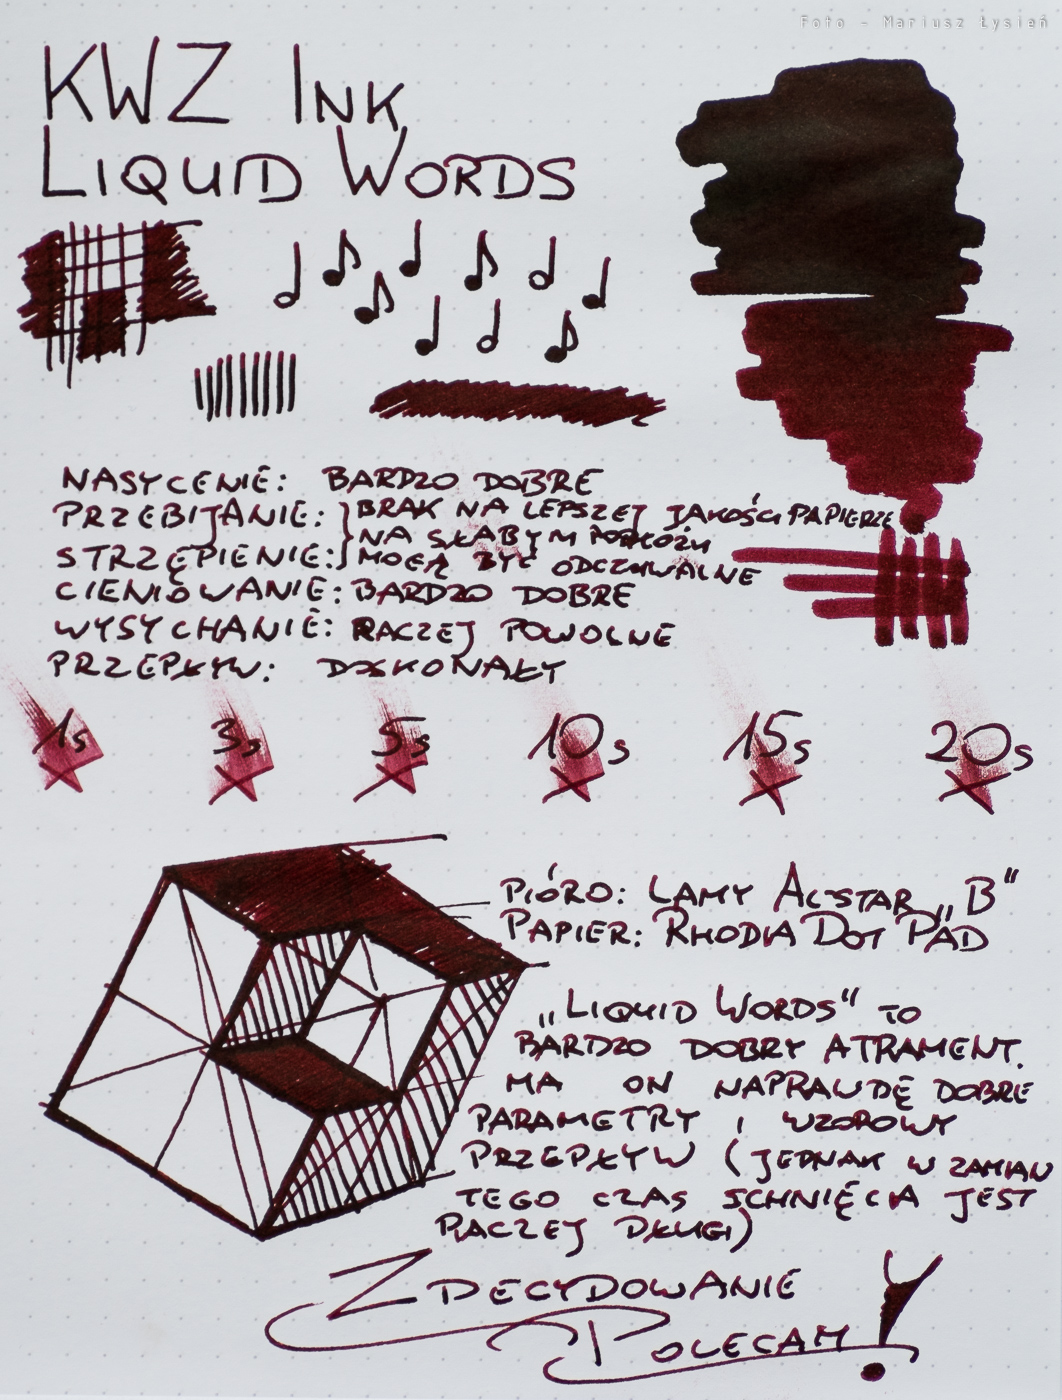 Foto - Mariusz Łysień
KWZ INK
LIQUID WORDS
NASYCENIE: BARDZO DOBRE
PRZEBIJANIE: BRAK NA LEPSZEJ JAKOŚCI PAPIERZE
NA SŁABYM PODŁOŻU
STRZĘPIENIE: MOGĄ BYĆ ODCZUWALNE
CIENIOWANIE: BARDZO DOBRE
WYSYCHANIE: RACZEJ POWOLNE
PRZEPŁYW: DOSKONAŁY
1s 3s 5s 10s 15s 20s
PIÓRO: LAMY AL-STAR „B"
PAPIER: RHODIA DOT PAD
„LIQUID WORDS" TO
BARDZO DOBRY ATRAMENT.
MA ON NAPRAWDĘ DOBRE
PARAMETRY I WZOROWY
PRZEPŁYW (JEDNAK W ZAMIAN
TEGO CZAS SCHNIĘCIA JEST
RACZEJ DŁUGI)
ZDECYDOWANIE
POLECAM!